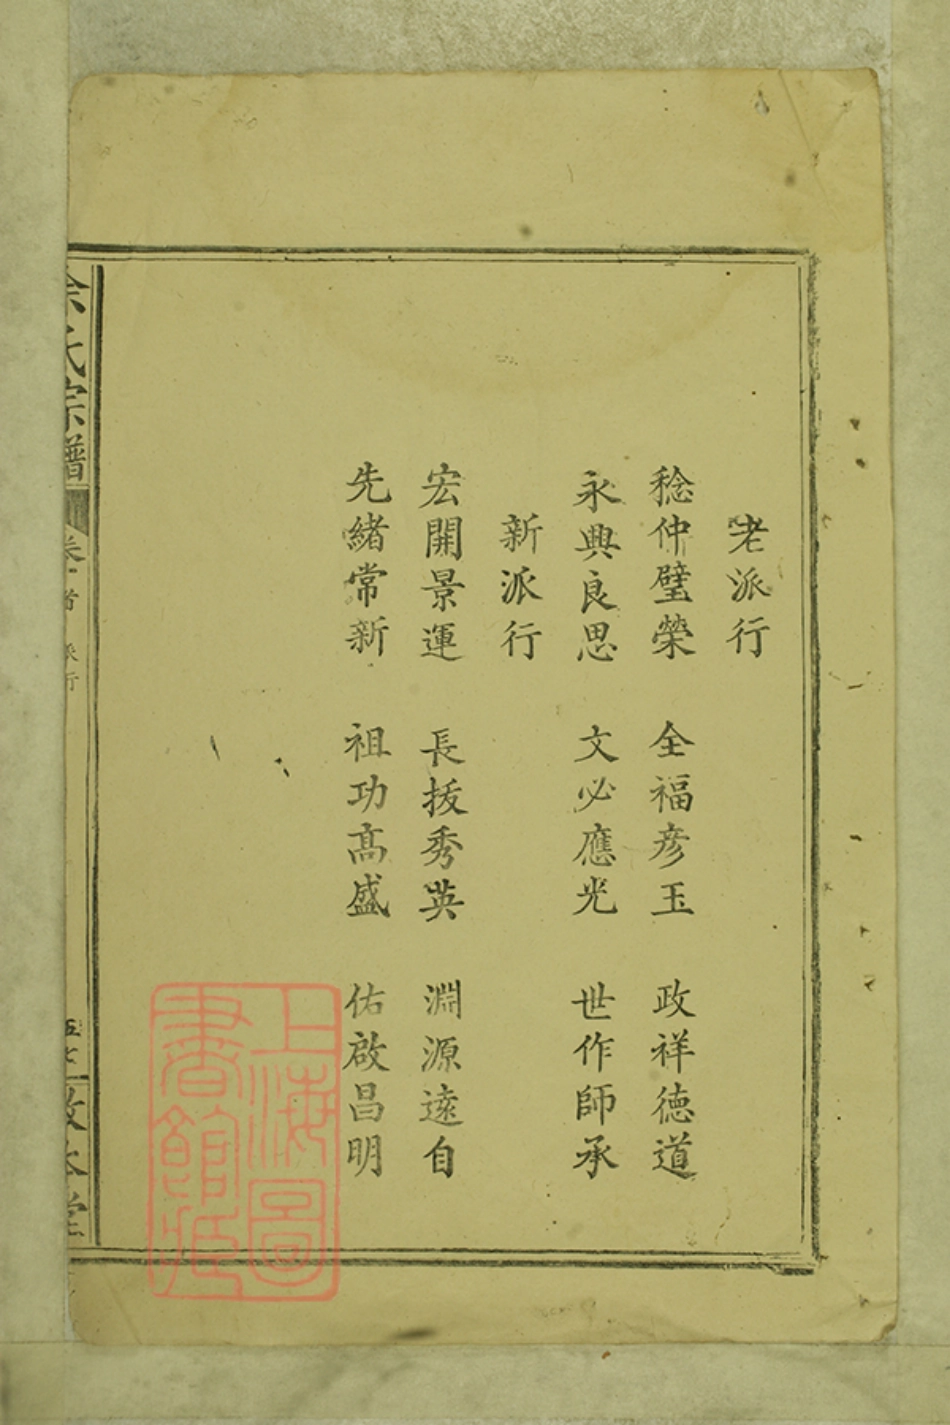 老派行
稔仲璧榮 全福彦玉 政祥德道
永興良思 文必應光 世作師承
新派行
宏開景運 長拔秀英 淵源遠自
先緒常新 祖功高盛 佑啟昌明
氏宗譜 卷首 派行
上海圖書館藏